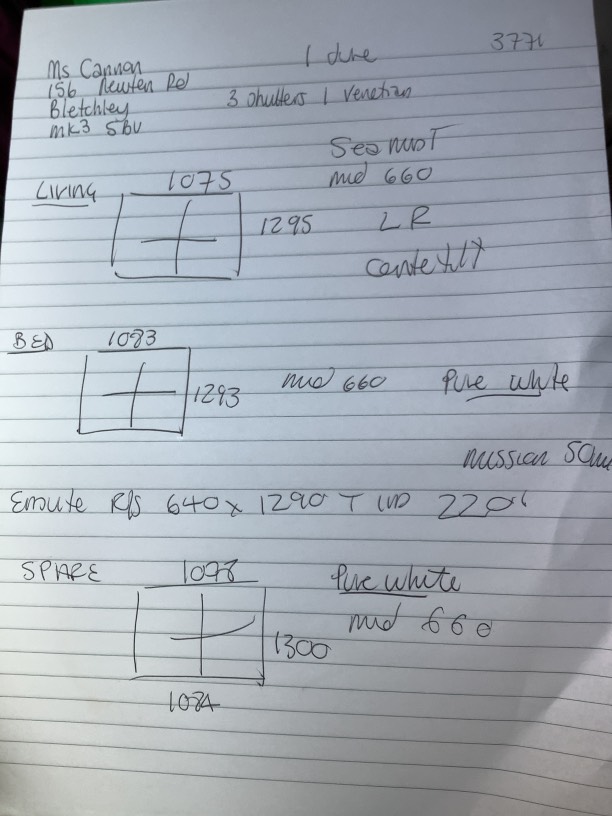 1 June 3771
Ms Cannon
156 Newton Rd
Bletchley 3 Shutters 1 Venetian
MK3 5BU
LIVING 1075 mid 660
1295 LR
Centre tilt
BED 1083
1293 mid 660 Pure white
mission 50mm
Ensuite R/S 640 x 1290 T
SPARE 1078 Pure white
mid 660
1300
1084